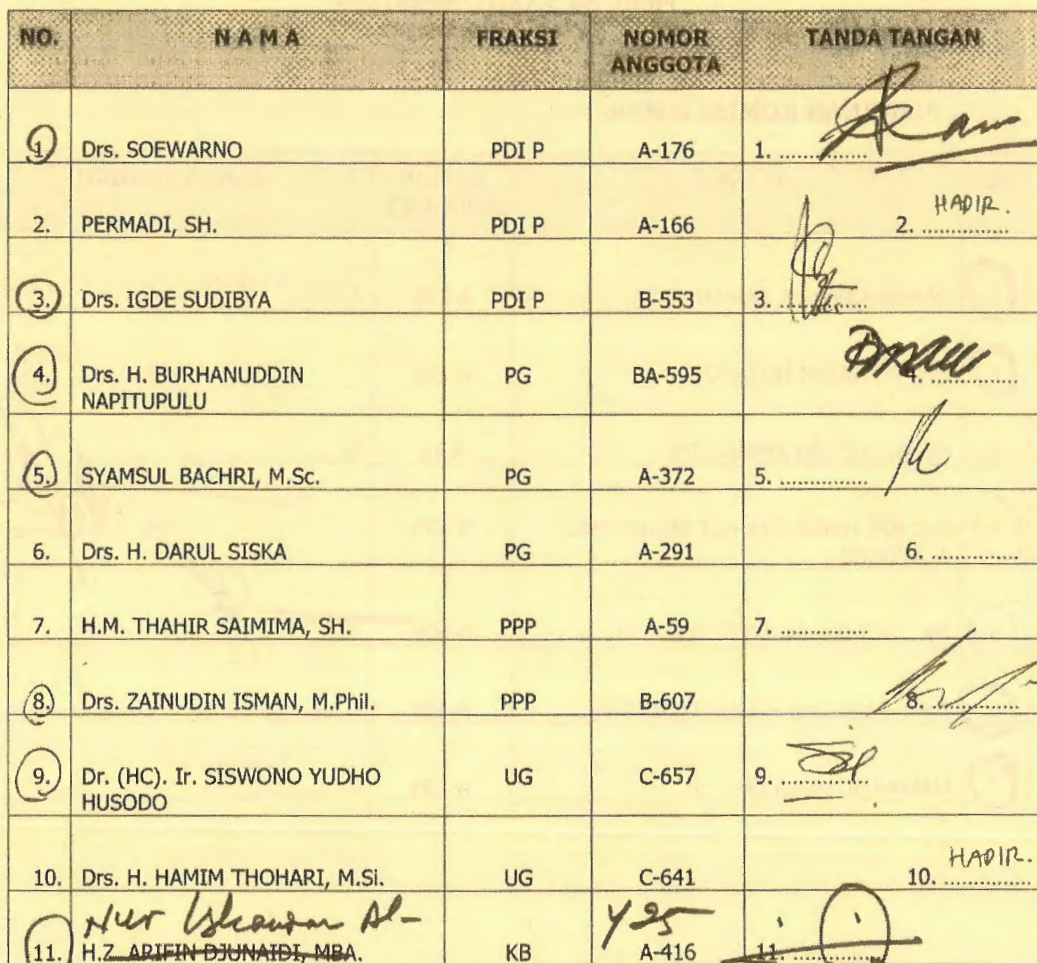 NO. NAMA FRAKSI NOMOR ANGGOTA TANDA TANGAN
1. Drs. SOEWARNO PDI P A-176 1. ...............
2. PERMADI, SH. PDI P A-166 2. ............... HADIR.
3. Drs. IGDE SUDIBYA PDI P B-553 3. ...............
4. Drs. H. BURHANUDDIN NAPITUPULU PG BA-595 4. ...............
5. SYAMSUL BACHRI, M.Sc. PG A-372 5. ...............
6. Drs. H. DARUL SISKA PG A-291 6. ...............
7. H.M. THAHIR SAIMIMA, SH. PPP A-59 7. ...............
8. Drs. ZAINUDIN ISMAN, M.Phil. PPP B-607 8. ...............
9. Dr. (HC). Ir. SISWONO YUDHO HUSODO UG C-657 9. ...............
10. Drs. H. HAMIM THOHARI, M.Si. UG C-641 10. ............... HADIR.
Nur Al-
11. H.Z. ARIFIN DJUNAIDI, MBA. KB A-416 11. ...............